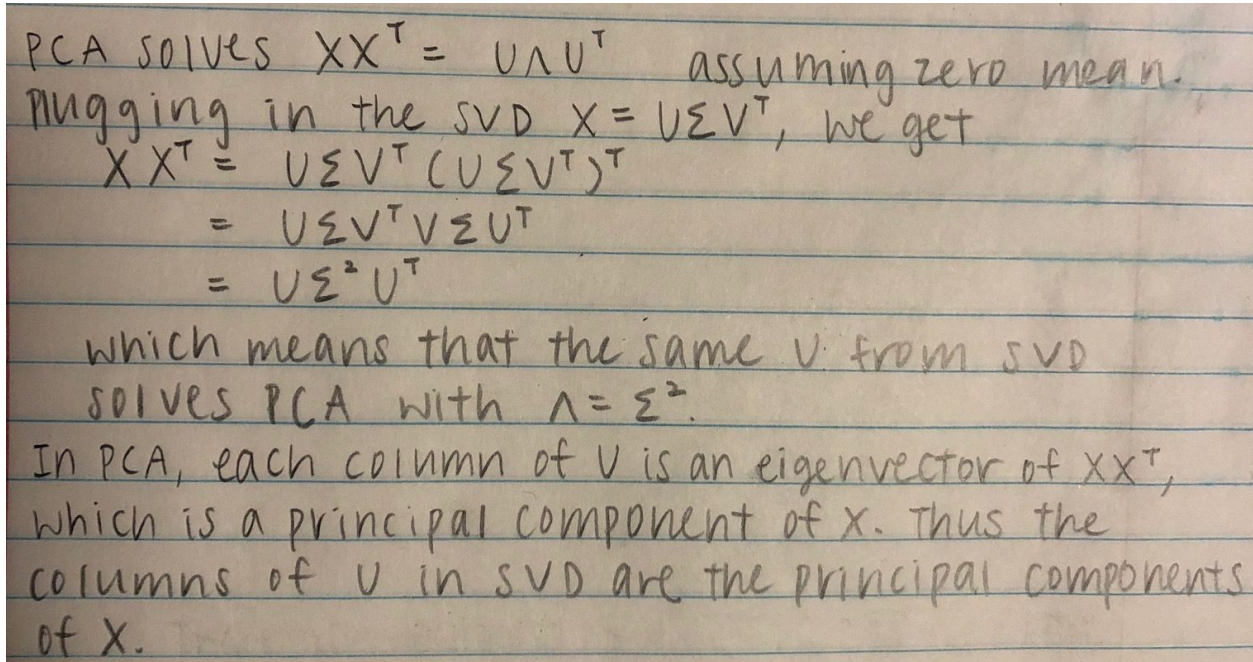 PCA solves XXᵀ = UΛUᵀ assuming zero mean.
Plugging in the SVD X = UΣVᵀ, we get
XXᵀ = UΣVᵀ(UΣVᵀ)ᵀ
= UΣVᵀVΣUᵀ
= UΣ²Uᵀ
which means that the same U from SVD
solves PCA with Λ = Σ².
In PCA, each column of U is an eigenvector of XXᵀ,
which is a principal component of X. Thus the
columns of U in SVD are the principal components
of X.